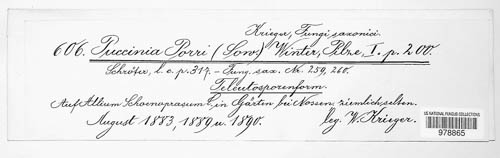 Krieger, Fungi saxonici.
606. Puccinia Porri (Sow.) Winter, Pilze, I. p. 200.
Schröter, l. c. p. 317. – Fung. sax. Nr. 259, 260.
Teleutosporenform.
Auf Allium Schoenoprasum L. in Gärten bei Nossen, ziemlich selten.
August 1883, 1889 u. 1890. leg. W. Krieger.
US NATIONAL FUNGUS COLLECTIONS
978865